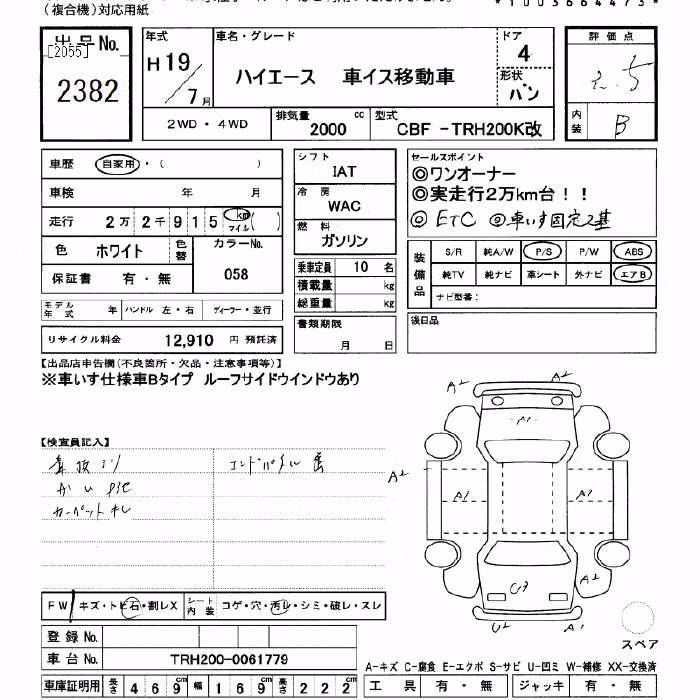 (複合機)対応用紙
*1003664473*
出品No.
[2055]
2382
年式
H19/7月
車名・グレード
ハイエース 車イス移動車
ドア
4
形状
バン
評価点
2.5
内装
B
2WD・4WD
排気量
2000 cc
型式
CBF -TRH200K改
車歴 自家用・( )
車検 年 月
走行 2万2千915 km マイル ( )
色 ホワイト 色替 カラーNo.
保証書 有・無 058
モデル年式 年 ハンドル 左・右 ディーラー・並行
リサイクル料金 12,910 円 預託済
シフト
IAT
冷房
WAC
燃料
ガソリン
乗車定員 10 名
積載量 kg
総重量 kg
書類期限
月 日
セールスポイント
◎ワンオーナー
◎実走行2万km台!!
◎ETC ◎車いす固定2基
装備品
S/R 純A/W P/S P/W ABS
純TV 純ナビ 革シート 外ナビ エアB
ナビ型番:
後日品
【出品店申告欄(不良箇所・欠品・注意事項等)】
※車いす仕様車Bタイプ ルーフサイドウインドウあり
【検査員記入】
カーペットキレ
A2 A2
A1
A2 A1 A1 A2
U3 A2
U2 A1
スペア
FW キズ・トビ石・割レX シート内装 コゲ・穴・汚レ・シミ・破レ・スレ
登録No.
車台No. TRH200-0061779
車庫証明用 長さ 469cm 幅 169cm 高さ 222cm
A-キズ C-腐食 E-エクボ S-サビ U-凹ミ W-補修 XX-交換済
工具 有・無 ジャッキ 有・無